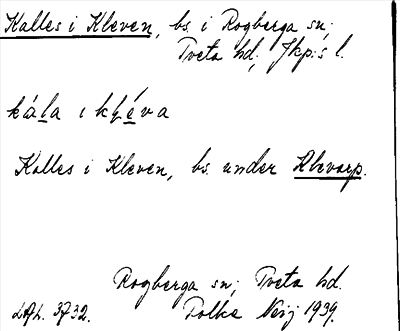 Kalles i Kleven, bs. i Rogberga sn;
Tveta hd; Jkp:s l.
Kalles i Kleven, bs. under Klevarp.
Rogberga sn; Tveta hd.
3732.
Folke Neij 1939.